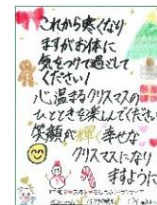 これから寒くなり
ますがお体に
気をつけて過ごして
ください!
心温まるクリスマスの
ひとときを楽しんでください
笑顔が輝く幸せな
クリスマスになり
ますように